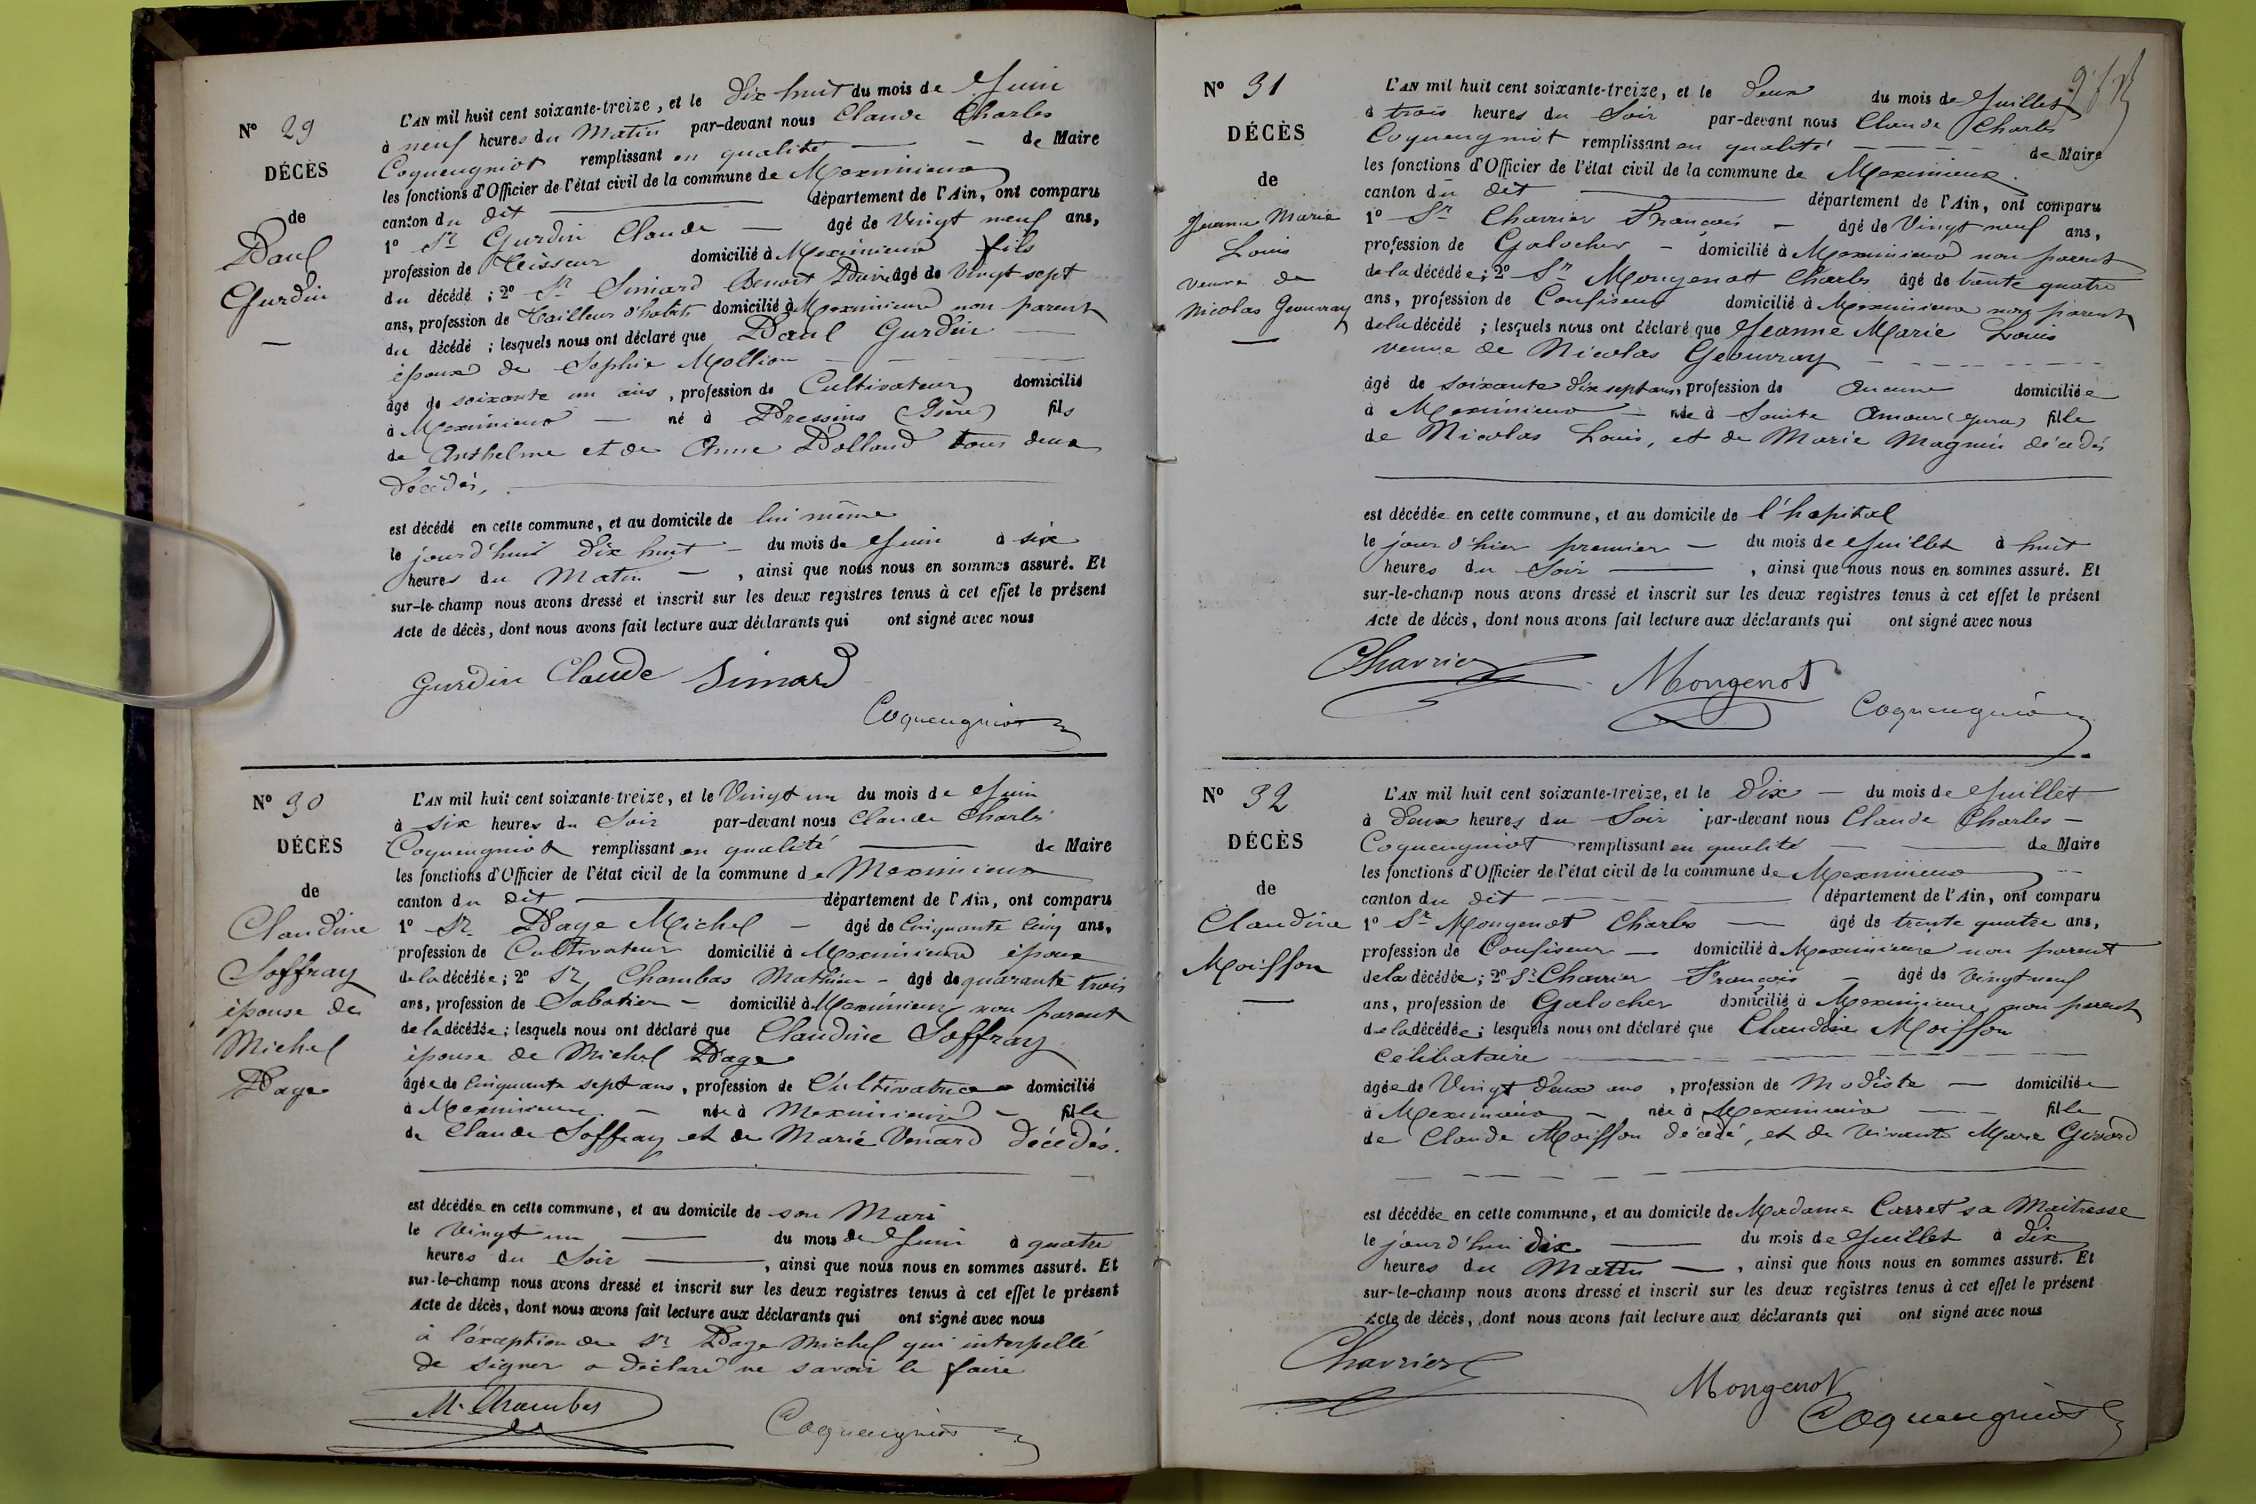 N° 29
DÉCÈS
de
Paul
Gurdin
L'AN mil huit cent soixante-treize, et le Dix huit du mois de Juin
à neuf heures du Matin par-devant nous Claude Charles
Coqueugniot remplissant en qualité de Maire
les fonctions d'Officier de l'état civil de la commune de Meximieux
canton du dit département de l'Ain, ont comparu
1° Sr Gurdin Claude âgé de Vingt neuf ans,
profession de Tisseur domicilié à Meximieux fils
du décédé ; 2° Sr Simard Benoit âgé de Vingt sept
ans, profession de Tailleur d'habits domicilié à Meximieux non parent
du décédé ; lesquels nous ont déclaré que Paul Gurdin
époux de Sophie Mollion
âgé de soixante un ans, profession de Cultivateur domicilié
à Meximieux né à Pressins (Isère) fils
de Anthelme et de Anne Dolland tous deux
Décédés,
est décédé en cette commune, et au domicile de lui même
le jourd'hui Dix huit du mois de Juin à six
heures du Matin , ainsi que nous nous en sommes assuré. Et
sur-le-champ nous avons dressé et inscrit sur les deux registres tenus à cet effet le présent
Acte de décès, dont nous avons fait lecture aux déclarants qui ont signé avec nous
Gurdin Claude Simard
Coqueugniot
N° 30
DÉCÈS
de
Claudine
Soffray
épouse de
Michel
Page
L'AN mil huit cent soixante-treize, et le Vingt un du mois de Juin
à six heures du Soir par-devant nous Claude Charles
Coqueugniot remplissant en qualité de Maire
les fonctions d'Officier de l'état civil de la commune de Meximieux
canton du dit département de l'Ain, ont comparu
1° Sr Page Michel âgé de Cinquante Cinq ans,
profession de Cultivateur domicilié à Meximieux époux
de la décédée ; 2° Sr Chambas Mathieu âgé de quarante trois
ans, profession de Sabotier domicilié à Meximieux non parent
de la décédée ; lesquels nous ont déclaré que Claudine Soffray
épouse de Michel Page
âgée de Cinquante sept ans, profession de Cultivatrice domicilié
à Meximieux née à Meximieux fille
de Claude Soffray et de Marie Venard Décédés.
est décédée en cette commune, et au domicile de son Mari
le Vingt un du mois de Juin à quatre
heures du Soir , ainsi que nous nous en sommes assuré. Et
sur-le-champ nous avons dressé et inscrit sur les deux registres tenus à cet effet le présent
Acte de décès, dont nous avons fait lecture aux déclarants qui ont signé avec nous
à l'éxception de Sr Page Michel qui interpellé
de signer a déclaré ne savoir le faire
M. Chambas
Coqueugniot
N° 31
DÉCÈS
de
Jeanne Marie
Louis
veuve de
Nicolas Geouvray
L'AN mil huit cent soixante-treize, et le Deux du mois de Juillet
à trois heures du Soir par-devant nous Claude Charles
Coqueugniot remplissant en qualité de Maire
les fonctions d'Officier de l'état civil de la commune de Meximieux
canton du dit département de l'Ain, ont comparu
1° Sr Charrier François âgé de Vingt neuf ans,
profession de Galocher domicilié à Meximieux non parent
de la décédée ; 2° Sr Mongenot Charles âgé de trente quatre
ans, profession de Confiseur domicilié à Meximieux non parent
de la décédé ; lesquels nous ont déclaré que Jeanne Marie Louis
veuve de Nicolas Geouvray
âgé de soixante dix sept ans, profession de aucune domiciliée
à Meximieux née à Sainte Amour (Jura) fille
de Nicolas Louis, et de Marie Magnin décédés
est décédée en cette commune, et au domicile de l'hopital
le jour d'hier premier du mois de Juillet à huit
heures du Soir , ainsi que nous nous en sommes assuré. Et
sur-le-champ nous avons dressé et inscrit sur les deux registres tenus à cet effet le présent
Acte de décès, dont nous avons fait lecture aux déclarants qui ont signé avec nous
Charrier Mongenot Coqueugniot
N° 32
DÉCÈS
de
Claudine
Moiffon
L'AN mil huit cent soixante-treize, et le Dix du mois de Juillet
à Deux heures du Soir par-devant nous Claude Charles
Coqueugniot remplissant en qualité de Maire
les fonctions d'Officier de l'état civil de la commune de Meximieux
canton du dit département de l'Ain, ont comparu
1° Sr Mongenot Charles âgé de trente quatre ans,
profession de Confiseur domicilié à Meximieux non parent
de la décédée ; 2° Sr Charrier François âgé de vingt neuf
ans, profession de Galocher domicilié à Meximieux non parent
de la décédée ; lesquels nous ont déclaré que Claudine Moiffon
Célibataire
âgée de Vingt deux ans, profession de Modiste domiciliée
à Meximieux née à Meximieux fille
de Claude Moiffon décédé, et de vivante Marie Givord
est décédée en cette commune, et au domicile de Madame Carret sa Maitresse
le jourd'hui dix du mois de Juillet à Dix
heures du Matin , ainsi que nous nous en sommes assuré. Et
sur-le-champ nous avons dressé et inscrit sur les deux registres tenus à cet effet le présent
Acte de décès, dont nous avons fait lecture aux déclarants qui ont signé avec nous
Charrier
Mongenot
Coqueugniot